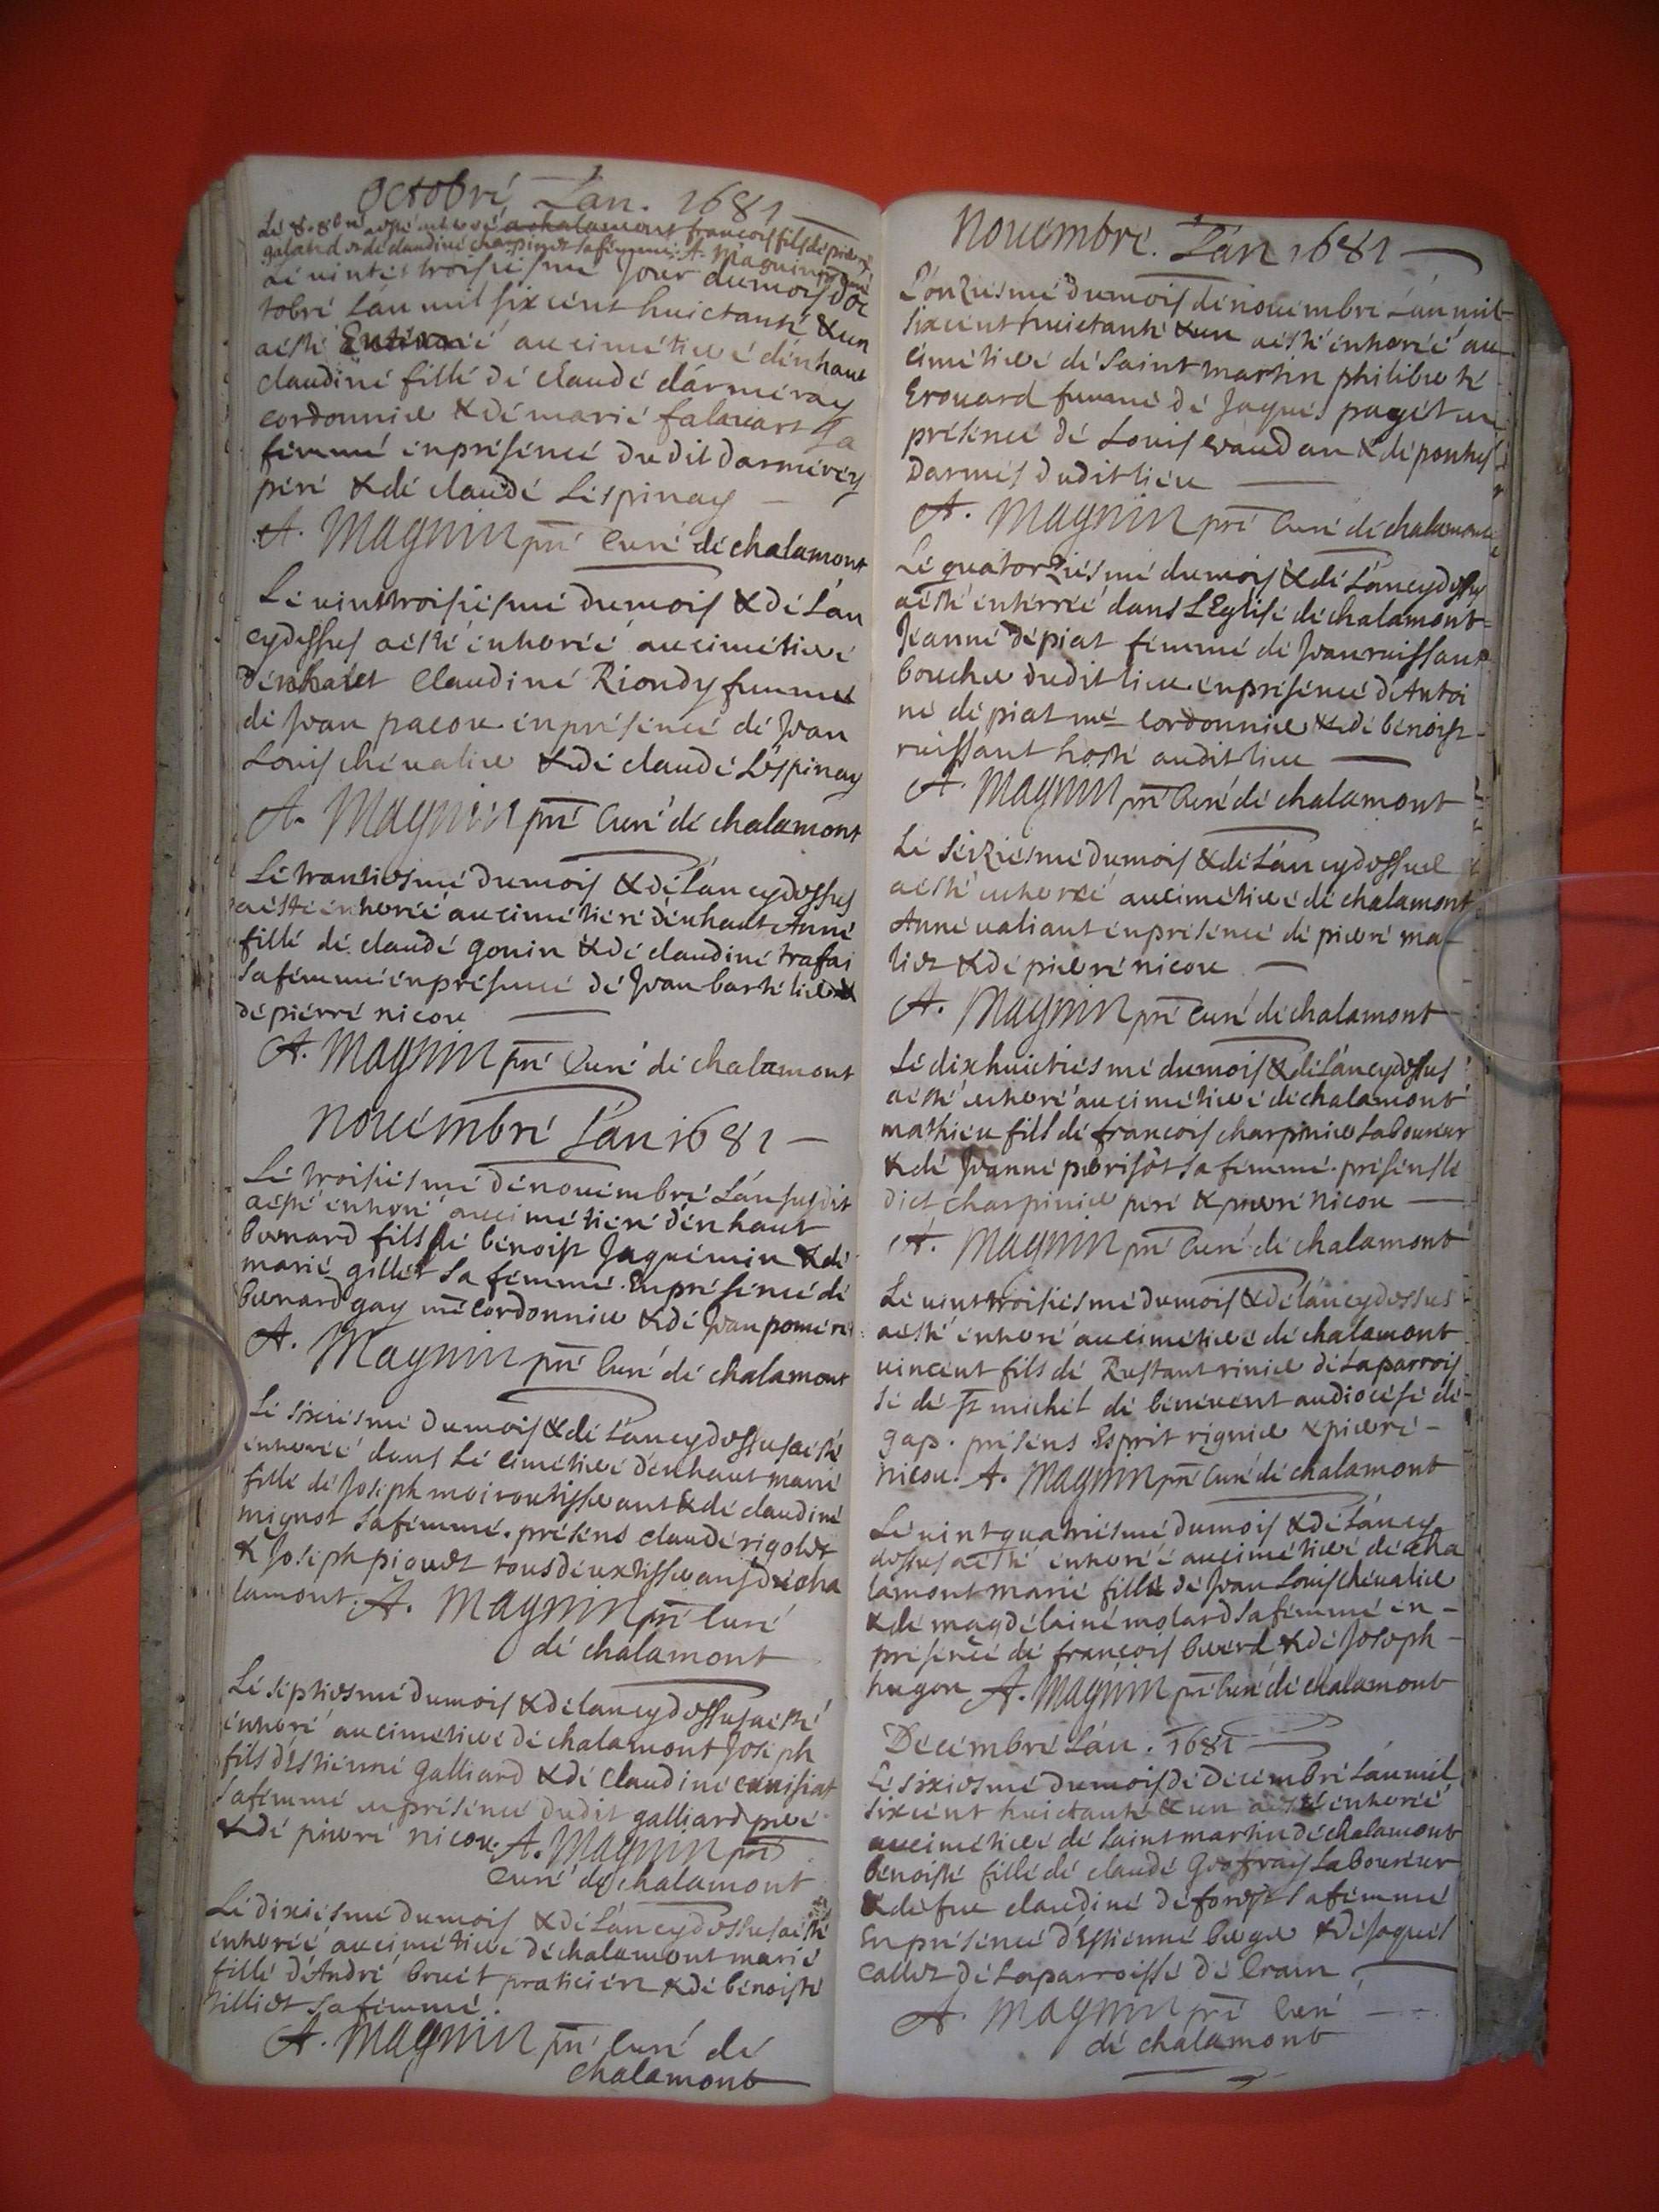 Octobré Lan. 1681
Lé 8. 8bré aesté enterré a chalamont francois fils dé pierré
galand & dé claudiné charpinet sa femmé. A. Magnin pré curé
Lé vintet troisiesmé Jour du mois d'oc
tobré Lán mil six cént huictanté & un
aesté Entérréé au cimétieré d'énhaut
Claudiné fillé dé Claudé dárméray
cordonnier & dé marié falavart sa
fémmé én présencé dudit darmérey
péré & dé claudé Léspinay
A. Magnin pré Curé dé chalamont
Lé vinttroisiésmé du mois & dé Lán
cydessus aesté énterréé au cimétieré
d'énhaut Claudiné Riondy fémmé
dé Jean pacou én présencé dé Jean
Louis chévalier & dé claudé Léspinay
A. Magnin pré Curé dé chalamont
Lé trantiesmé du mois & dé Lán cydessus
aesté énterréé au cimétieré d'énhaut Anné
fillé dé claudé gonin & dé claudiné trafai
sa fémmé én présencé dé Jean barthélier &
dé piérré nicou
A. Magnin pré Curé dé chalamont
Novémbré Lán 1681
Lé troisiésmé dé novémbré Lán susdit
aesté énterré au cimétieré d'én haut
bernard fils dé bénoist Jaquémin & dé
marié gillét sa fémmé. En présencé dé
bernard gay mé Cordonnier & dé Jean poméré
A. Magnin pré Curé dé chalamont
Lé sixiésmé du mois & dé Lán cydessus aesté
énterréé dans Lé cimétieré d'énhaut marié
fillé dé Joséph moirou tisserant & dé claudiné
mignot sa fémmé. préséns claudé rigolet
& Joséph piquet tous déux tisserans dé cha
lamont. A. Magnin pré Curé
dé chalamont
Lé séptiesmé du mois & dé lan cydessus aesté
énterré au cimétieré dé chalamont Joséph
fils d'éstienné Galliard & dé Claudiné cunisiat
sa fémmé én présencé dudit galliard peré
& dé pierré nicou. A. Magnin pré
Curé dé chalamont
Lé dixiésmé du mois & dé Lán cydessus aesté
énterréé au cimétieré dé chalamont marié
fillé d'André bruét praticién & dé bénoisté
tilliet sa fémmé.
A. Magnin pré Curé dé
chalamont
Novémbré. Lán 1681
L'ónziésmé du mois dé novémbré Lán mil
six cént huictanté & un aesté énterréé au
cimétieré dé Saint martin philiberté
Erouard fémmé dé Jaqués pagét én
présencé dé Louis vaudan & dé ponthus
Darmés dudit liéu
A. Magnin pré Curé dé chalamont
Lé quatorziésmé du mois & dé Láncydessus
aesté énterréé dans L'Eglisé dé chalamont
Jéanné dépiat fémmé dé Jean ruissant
boucher dudit lieu én présencé d'Antoi
né dépiat mé Cordonnier & dé bénoist
ruissant hosté audit lieu
A. Magnin pré Curé dé chalamont
Lé séiziésmé du mois & dé Lán cydessus
aesté énterréé au cimétieré dé chalamont
Anné valiant én présencé dé pierré ma
liet & dé pierré nicou
A. Magnin pré Curé dé chalamont
Lé dixhuictiésmé du mois & dé Láncydessus
aesté énterré au cimétieré dé chalamont
mathieu fils dé francois charpinier Laboureur
& dé Jeanné périsot sa fémmé. présens lé
dict charpinier péré & pierré Nicou
A. Magnin pré Curé dé chalamont
Lé vinttroisiésmé du mois & dé láncydessus
aesté énterré au cimétieré dé chalamont
vincent fils dé Rustant rinier dé la parrois
sé dé St michél dé bénévent au diocésé dé
gap. présens Esprit rignier & pierré
nicou. A. Magnin pré Curé dé chalamont
Lé vintquatriésmé du mois & dé Láncy
dessus aesté énterréé au cimétieré dé cha
lamont marié fillé dé Jean Louis chévalier
& dé magdélainé molard sa fémmé én
présencé dé francois buerd & dé Joséph
hugon A. Magnin pré Curé dé chalamont
Décémbré Lán. 1681
Lé sixiesmé du mois dé Décémbré Lán mil
six cént huictanté & un aesté énterréé
au cimétieré dé Saint martin dé chalamont
bénoisté fillé dé claudé Geoffray Laboureur
& dé fue claudiné déforest sa fémmé
En présencé d'Estienné berger & dé Jaqués
Callet dé la parroissé dé Cran
A. Magnin pré Curé
dé chalamont